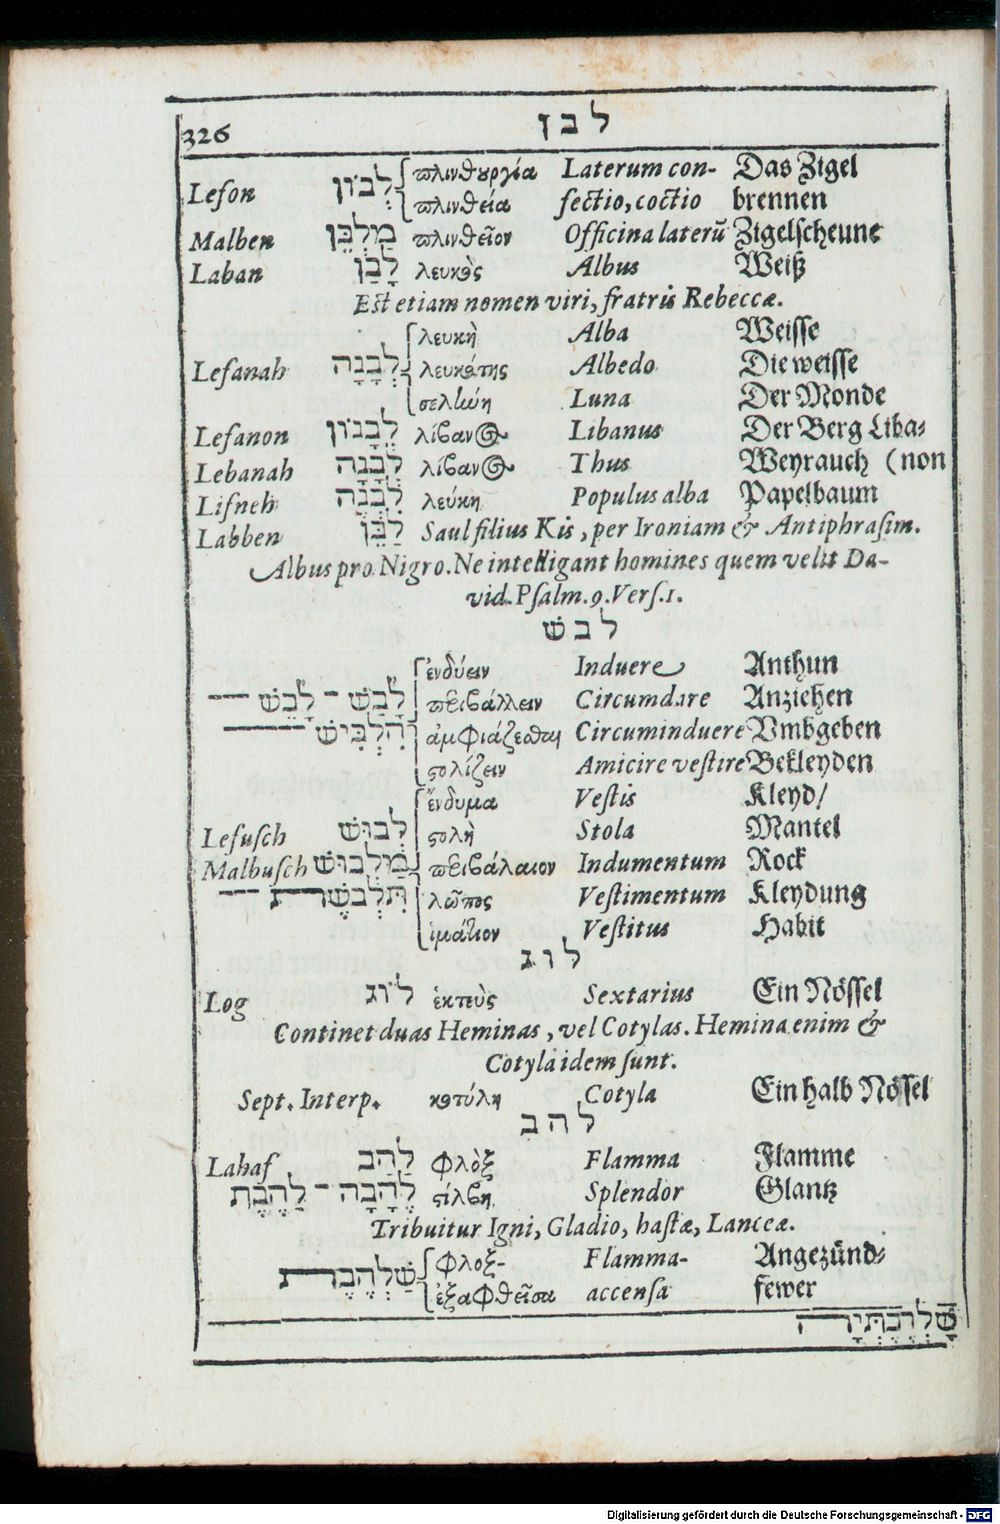 326 לבן
Lefon לְבוֹן πλινθουργία Laterum con- Das Zigel
πλινθεία fectio, coctio brennen
Malben מַלְבֵּן πλινθεῖον Officina laterũ Zigelscheune
Laban לָבָן λευκὸς Albus Weiß
Est etiam nomen viri, fratris Rebeccæ.
λευκὴ Alba Weisse
Lefanah לְבָנָה λευκότης Albedo Die weisse
σελήνη Luna Der Monde
Lefanon לְבָנוֹן λίβανος Libanus Der Berg Liba-
Lebanah לְבֹנָה λίβανος Thus Weyrauch (non
Lifneh לִבְנֶה λεύκη Populus alba Papelbaum
Labben לַבֵּן Saul filius Kis, per Ironiam & Antiphrasim.
Albus pro Nigro. Ne intelligant homines quem velit Da-
vid. Psalm. 9. Vers. 1.
לבש
ἐνδύειν Induere Anthun
לָבַשׁ - לָבֵשׁ — περιβάλλειν Circumdare Anziehen
הִלְבִּישׁ — ἀμφιάζεσθαι Circuminduere Vmbgeben
στολίζειν Amicire vestire Bekleyden
ἔνδυμα Vestis Kleyd/
Lefusch לְבוּשׁ στολὴ Stola Mantel
Malbusch מַלְבּוּשׁ περιβόλαιον Indumentum Rock
תִּלְבֹּשֶׁת — λῶπος Vestimentum Kleydung
ἱμάτιον Vestitus Habit
לוג
Log לוֹג ἑκτεὺς Sextarius Ein Nössel
Continet duas Heminas, vel Cotylas. Hemina enim &
Cotyla idem sunt.
Sept. Interp. κοτύλη Cotyla Ein halb Nössel
להב
Lahaf לַהַב φλὸξ Flamma Flamme
לֶהָבָה - לַהֶבֶת στίλβη Splendor Glantz
Tribuitur Igni, Gladio, hastæ, Lanceæ.
שַׁלְהֶבֶת φλοξ- Flamma- Angezünd-
ἐξαφθεῖσα accensa fewer
שַׁלְהֶבֶתְיָה
Digitalisierung gefördert durch die Deutsche Forschungsgemeinschaft - DFG